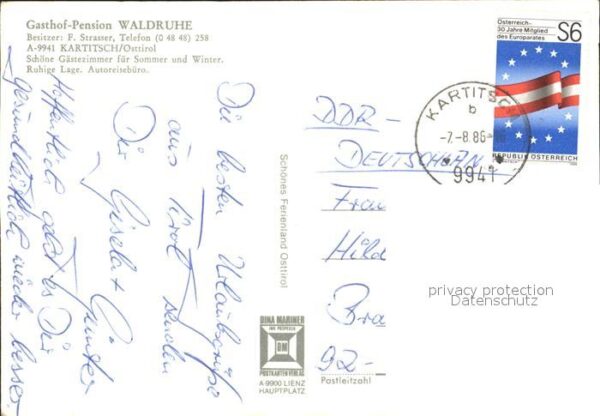 Gasthof-Pension WALDRUHE
Besitzer: F. Strasser, Telefon (0 48 48) 258
A-9941 KARTITSCH/Osttirol
Schöne Gästezimmer für Sommer und Winter.
Ruhige Lage. Autoreisebüro.
Die besten Urlaubsgrüße
aus Tirol senden
Dir Gisela + Günter
Hoffentlich geht es Dir
gesundheitlich wieder besser.
Schönes Ferienland Osttirol
DINA MARINER
DM
POSTKARTENVERLAG
A 9900 LIENZ
HAUPTPLATZ
Österreich-
30 Jahre Mitglied
des Europarates
S6
REPUBLIK ÖSTERREICH
KARTITSCH
b
-7.-8.86
9941
DDR-
DEUTSCHLAND
Frau
Hild
Bra
92-
Postleitzahl
privacy protection
Datenschutz